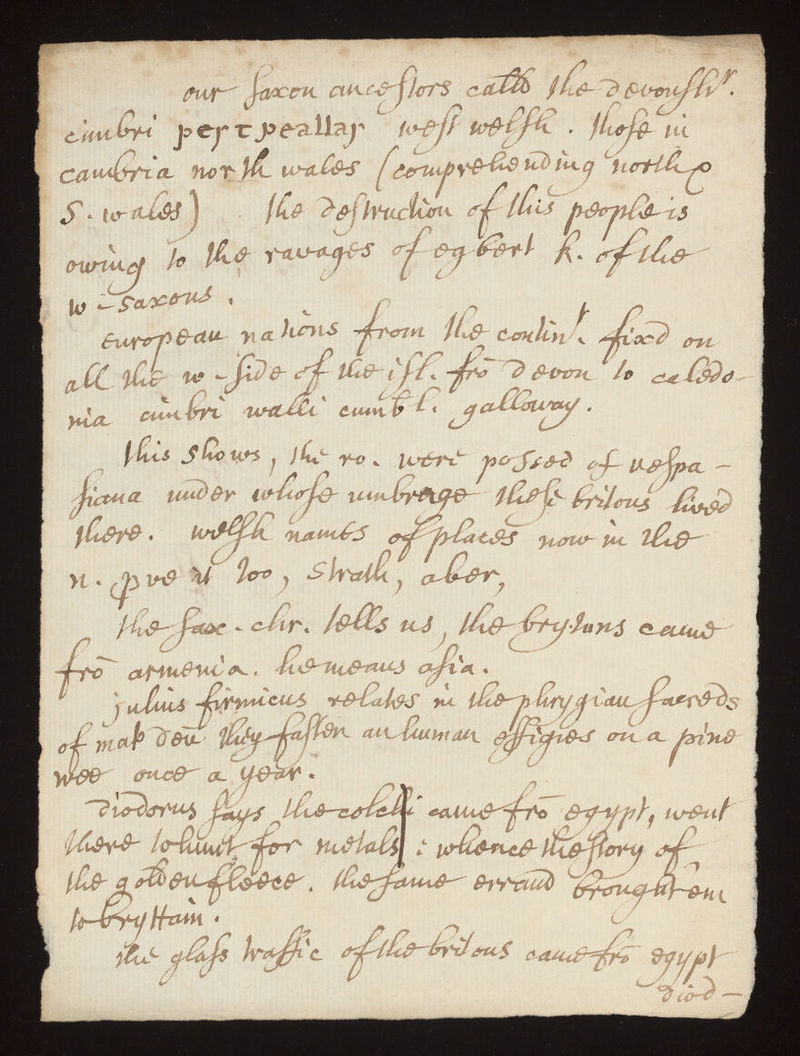 our saxon ancestors calld the devonshr.
cimbri pestpeallas west welsh. those in
cambria north wales (comprehending north &
S. wales) the destruction of this people is
owing to the ravages of egbert k. of the
w-saxons.
european nations from the contint. fixd on
all the w-side of the isl. frō devon to caledo-
nia cimbri walli cumbl. galloway.
this shows, the ro. were possed of vespa-
siana under whose umbrage these britons lived
there. welsh names of places now in the
n. pve it too, strath, aber,
the sax. chr. tells us, the brytons came
frō armenia. he means asia.
julius firmicus relates in the phrygian sacreds
of mat. deū they fasten an human effigies on a pine
tree once a year.
diodorus says the colchi came frō egypt, went
there to hunt for metals: whence the story of
the golden fleece. the same errand brought 'em
to bryttain.
the glass traffic of the britons came frō egypt
diod-